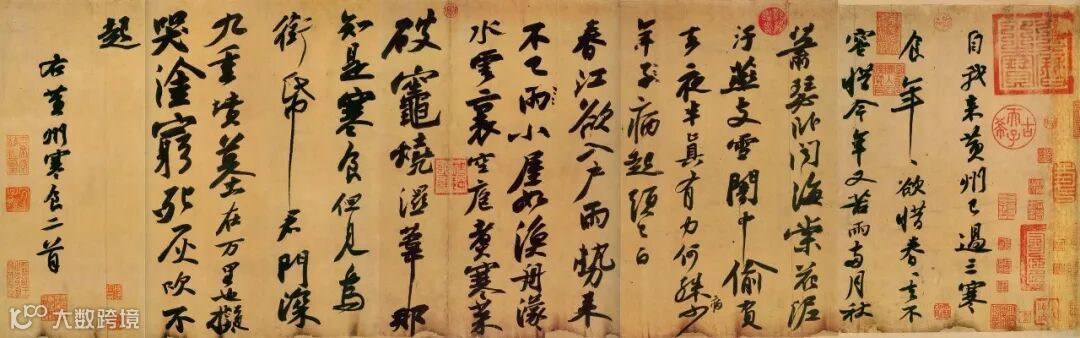 自我来黄州已過三寒
食年〻欲惜春〻去不
容惜今年又苦雨兩月秋
蕭瑟卧聞海棠花泥
汙燕支雪闇中偷負
去夜半真有力何殊少
年子病起頭已白
春江欲入户雨勢来
不已雨小屋如漁舟濛〻
水雲裏空庖煮寒菜
破竈燒濕葦那
知是寒食但見烏
銜帋君門深
九重墳墓在万里也擬
哭塗窮死灰吹不
起
右黄州寒食二首
大数跨境